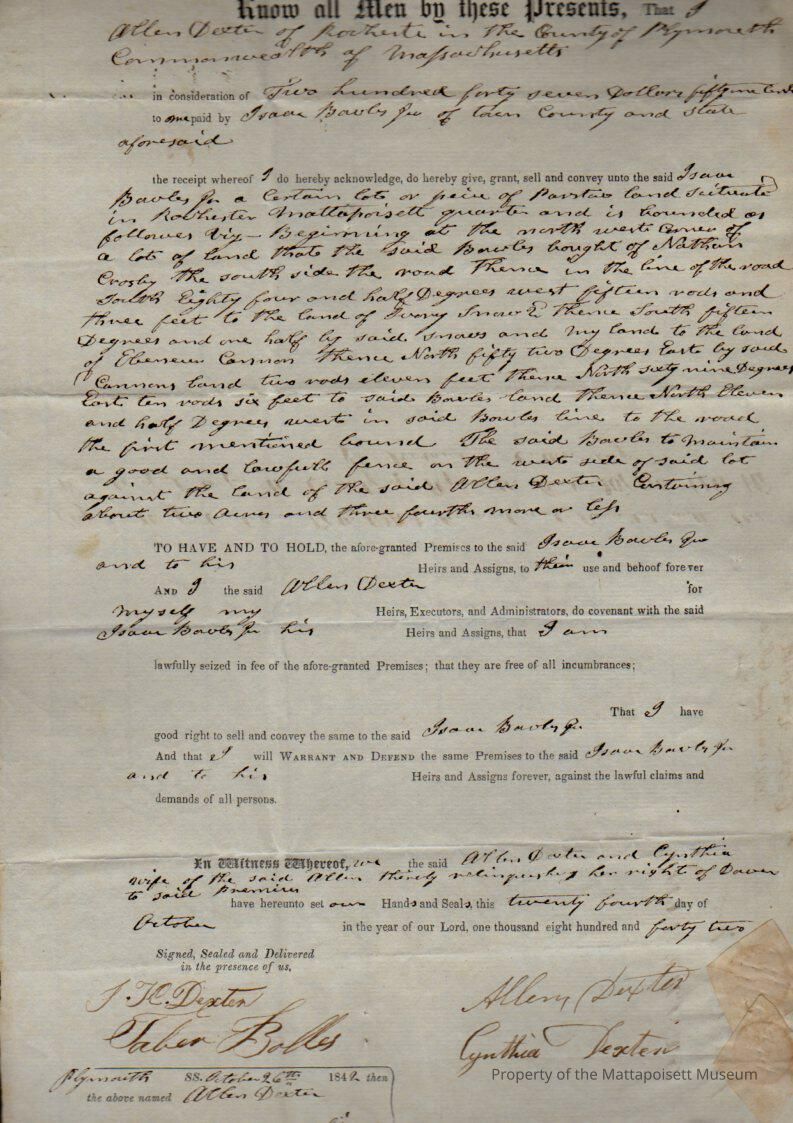 Know all Men by these Presents, That I
Allen Dexter of Rochester in the County of Plymouth
Commonwealth of Massachusetts
in consideration of Two hundred forty seven Dollars fifty
to me paid by Isaac Bowles Jr of town County and State
aforesaid
the receipt whereof I do hereby acknowledge, do hereby give, grant, sell and convey unto the said Isaac
Bowles Jr a Certain lote or peice of land scituate
in Rochester Mattapoisett quarter and is bounded as
followes Viz Beginning at the north west Corner of
a lote of land that the said Bowles bought of Nathan
Crosby the south side the road Thence in the line of the road
South Eighty four and half Degrees west fifteen rods and
three feet to the land of Ivory Snow thence South fifteen
Degrees and one half by said Snows and my land to the land
of Ebenezer Cannon thence North fifty two Degrees East by said
Cannons land two rods eleven feet thence North sixty nine Degrees
East ten rods six feet to said Bowles land thence North Eleven
and half Degrees west in said Bowles line to the road
the first mentioned bound The said Bowles to maintain
a good and lawfull fence on the west side of said lot
against the land of the said Allen Dexter Containing
about two Acres and three fourths more or less
TO HAVE AND TO HOLD, the afore-granted Premises to the said Isaac Bowles Jr
and to his Heirs and Assigns, to their use and behoof forever
AND I the said Allen Dexter for
myself my Heirs, Executors, and Administrators, do covenant with the said
Isaac Bowles Jr his Heirs and Assigns, that I am
lawfully seized in fee of the afore-granted Premises; that they are free of all incumbrances;
That I have
good right to sell and convey the same to the said Isaac Bowles Jr
And that I will WARRANT AND DEFEND the same Premises to the said Isaac Bowles Jr
and to his Heirs and Assigns forever, against the lawful claims and
demands of all persons.
In Witness Whereof, we the said Allen Dexter and Cynthia
wife of the said Allen thereby relinquishing her right of Dower
to said premises
have hereunto set our Hands and Seals, this twenty fourth day of
October in the year of our Lord, one thousand eight hundred and forty two
Signed, Sealed and Delivered
in the presence of us,
Allen Dexter
Dexter
Taber Bolles
Cynthia Dexter
Plymouth SS. October 26th 1842 then
the above named Allen Dexter
Property of the Mattapoisett Museum